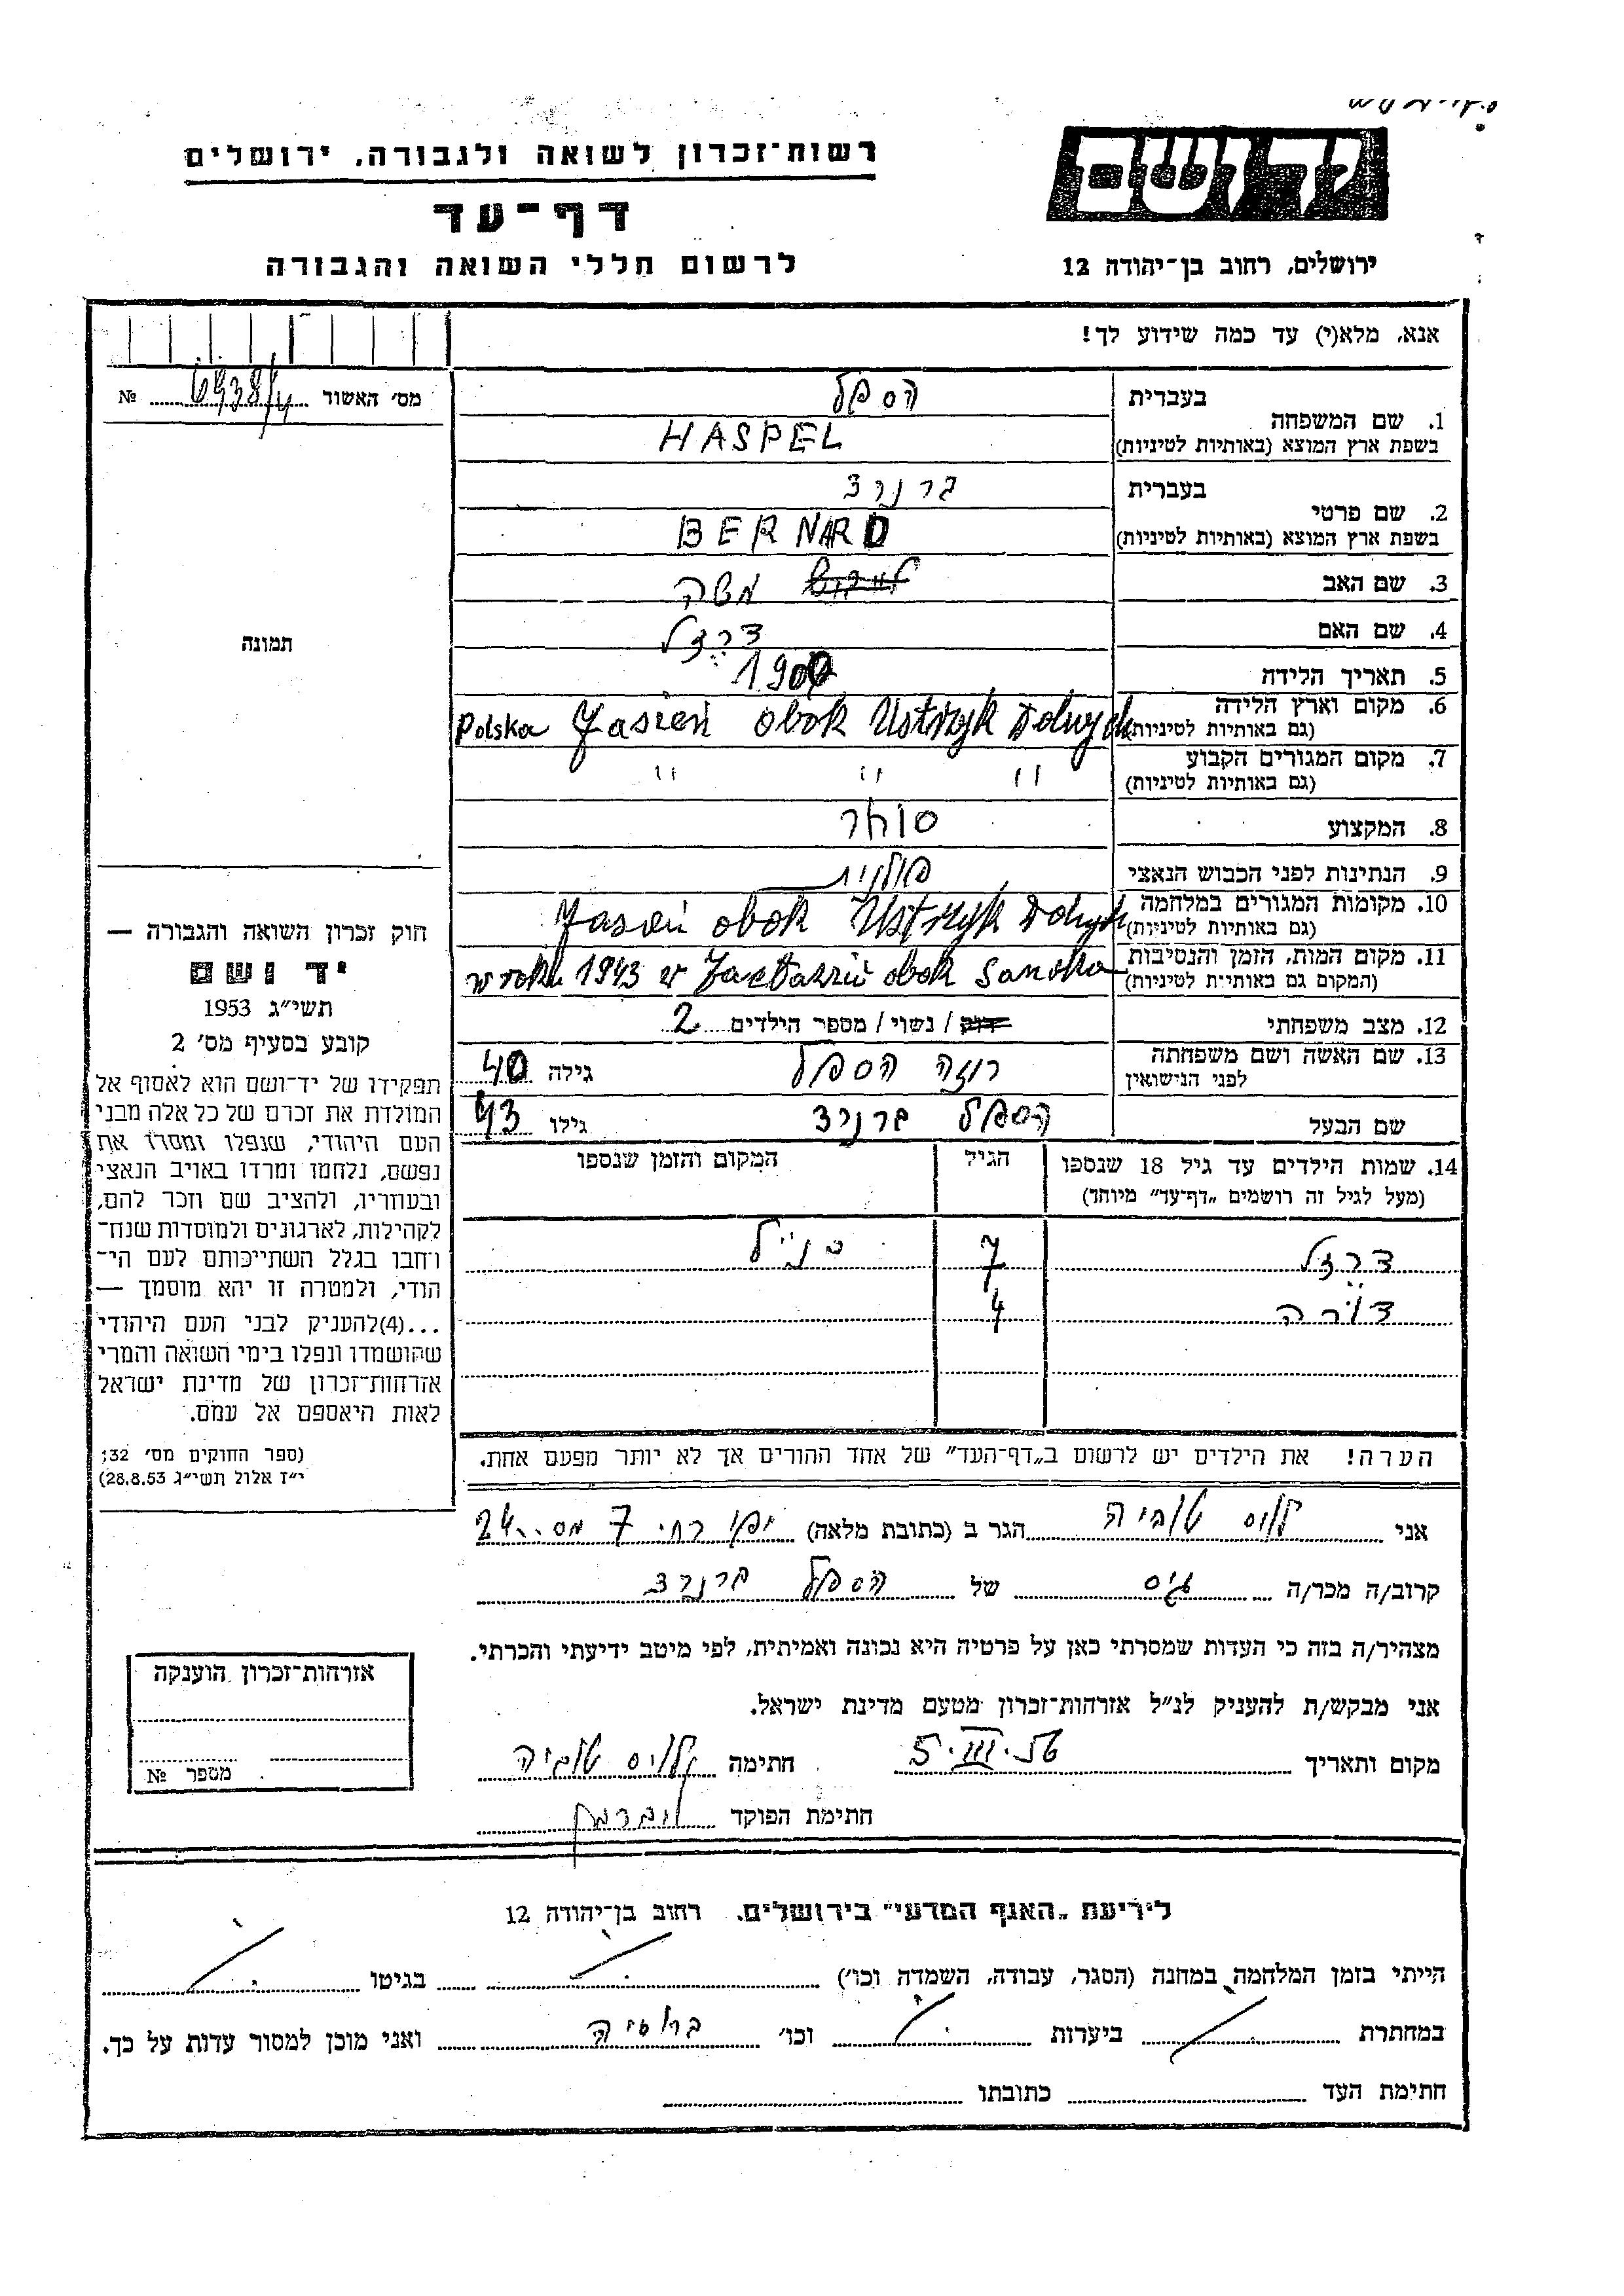 יד ושם
ירושלים, רחוב בן־יהודה 12
רשות־זכרון לשואה ולגבורה, ירושלים
דף־עד
לרשום חללי השואה והגבורה
אנא, מלא(י) עד כמה שידוע לך!
מס׳ האשור № 6938/4
1. שם המשפחה
בעברית הספל
בשפת ארץ המוצא (באותיות לטיניות) HASPEL
2. שם פרטי
בעברית ברנרד
בשפת ארץ המוצא (באותיות לטיניות) BERNARD
3. שם האב משה
4. שם האם דרזל
5. תאריך הלידה 1900
6. מקום וארץ הלידה (גם באותיות לטיניות) Polska Jasień obok Ustrzyk Dolnych
7. מקום המגורים הקבוע (גם באותיות לטיניות) " " "
8. המקצוע סוחר
9. הנתינות לפני הכבוש הנאצי פולנית
10. מקומות המגורים במלחמה (גם באותיות לטיניות) Jasień obok Ustrzyk Dolnych
11. מקום המות, הזמן והנסיבות (המקום גם באותיות לטיניות) w roku 1943 w obok Sanoka
12. מצב משפחתי רווק / נשוי / מספר הילדים 2
13. שם האשה ושם משפחתה לפני הנישואין רוזה הספל גילה 40
שם הבעל הספל ברנרד גילו 43
14. שמות הילדים עד גיל 18 שנספו (מעל לגיל זה רושמים „דף־עד״ מיוחד) הגיל המקום והזמן שנספו
דרזל 7 כנ״ל
דורה 4
הערה! את הילדים יש לרשום ב„דף־העד״ של אחד ההורים אך לא יותר מפעם אחת.
תמונה
חוק זכרון השואה והגבורה —
יד ושם
תשי״ג 1953
קובע בסעיף מס׳ 2
תפקידו של יד־ושם הוא לאסוף אל
המולדת את זכרם של כל אלה מבני
העם היהודי, שנפלו ומסרו את
נפשם, נלחמו ומרדו באויב הנאצי
ובעוזריו, ולהציב שם וזכר להם,
לקהילות, לארגונים ולמוסדות שנח־
רחבו בגלל השתייכותם לעם הי־
הודי, ולמטרה זו יהא מוסמך —
...(4) להעניק לבני העם היהודי
שהושמדו ונפלו בימי השואה והמרי
אזרחות־זכרון של מדינת ישראל
לאות היאספם אל עמם.
(ספר החוקים מס׳ 132;
י״ז אלול תשי״ג 28.8.53)
אני טוביה הגר ב (כתובת מלאה) יפו רח׳ 7 מס. 24
קרוב/ה מכר/ה גיס של הספל ברנרד
מצהיר/ה בזה כי העדות שמסרתי כאן על פרטיה היא נכונה ואמיתית, לפי מיטב ידיעתי והכרתי.
אני מבקש/ת להעניק לנ״ל אזרחות־זכרון מטעם מדינת ישראל.
מקום ותאריך 5.III.56 חתימה טוביה
חתימת הפוקד
אזרחות־זכרון הוענקה
מספר №
לידיעת „האגף המדעי״ בירושלים, רחוב בן־יהודה 12
הייתי בזמן המלחמה במחנה (הסגר, עבודה, השמדה וכו׳) בגיטו
במחתרת ביערות וכו׳ ברוסיה ואני מוכן למסור עדות על כך.
חתימת העד כתובתו